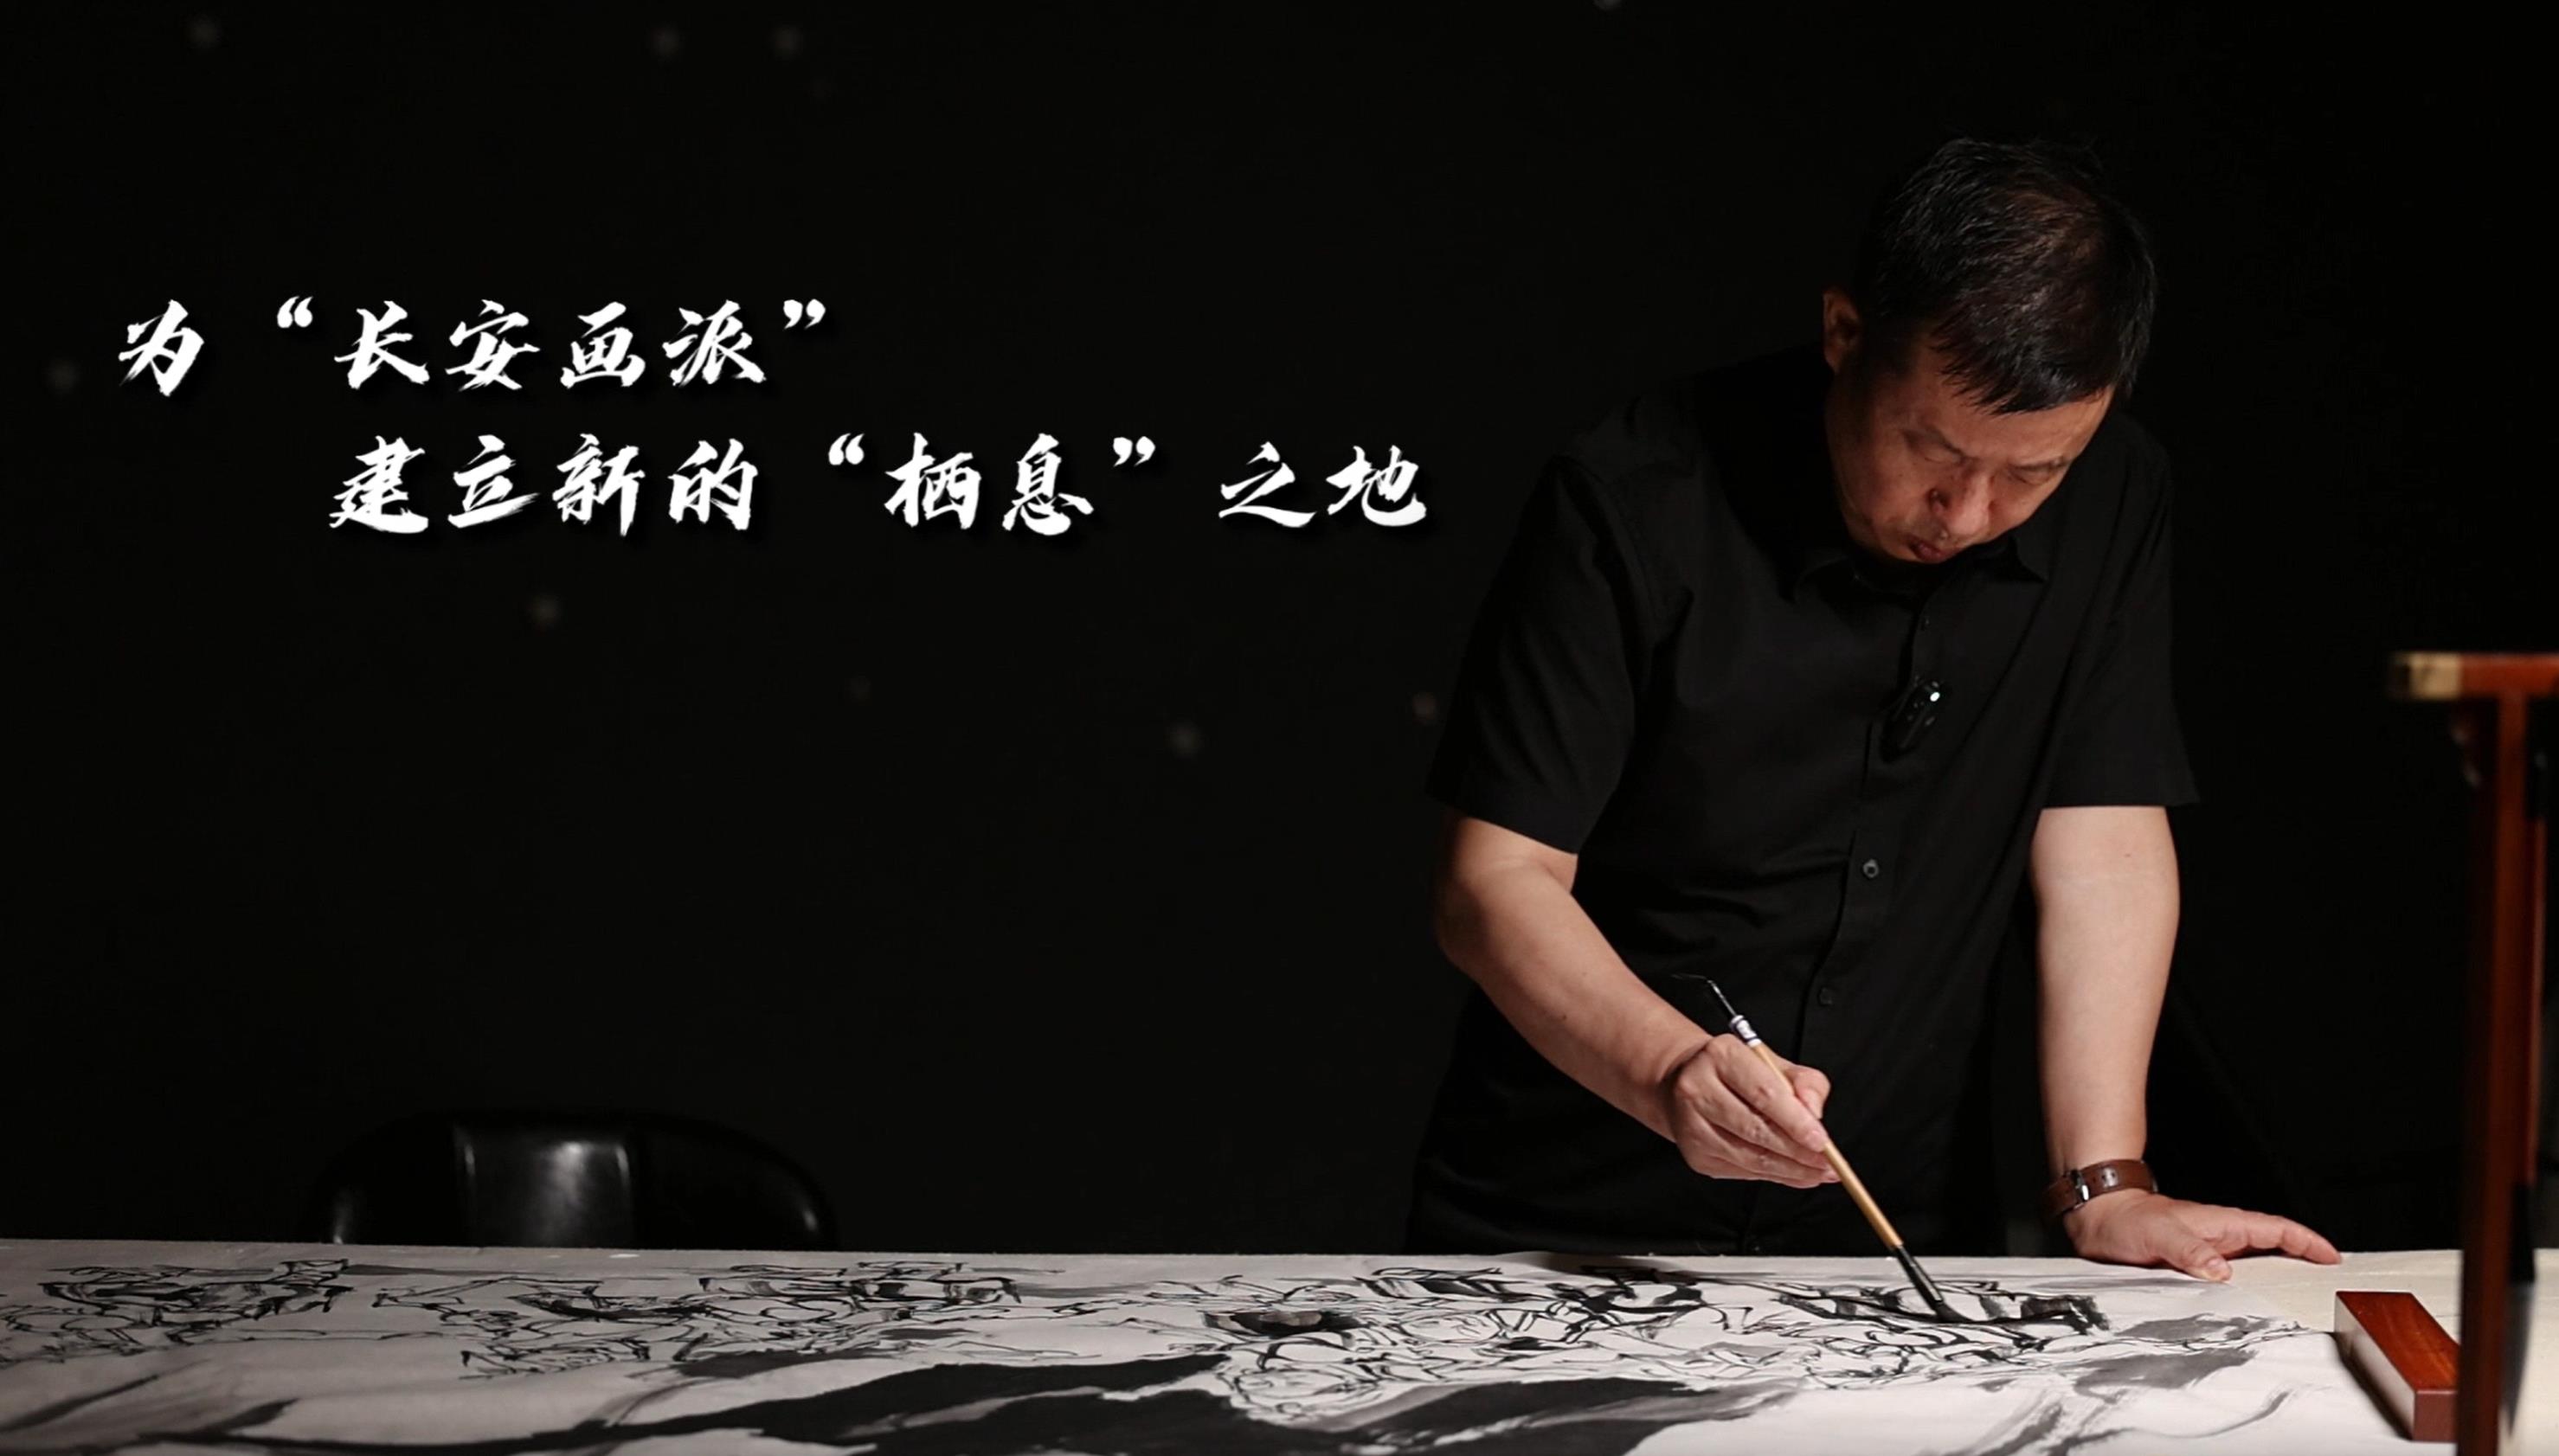 为“长安画派”
建立新的“栖息”之地